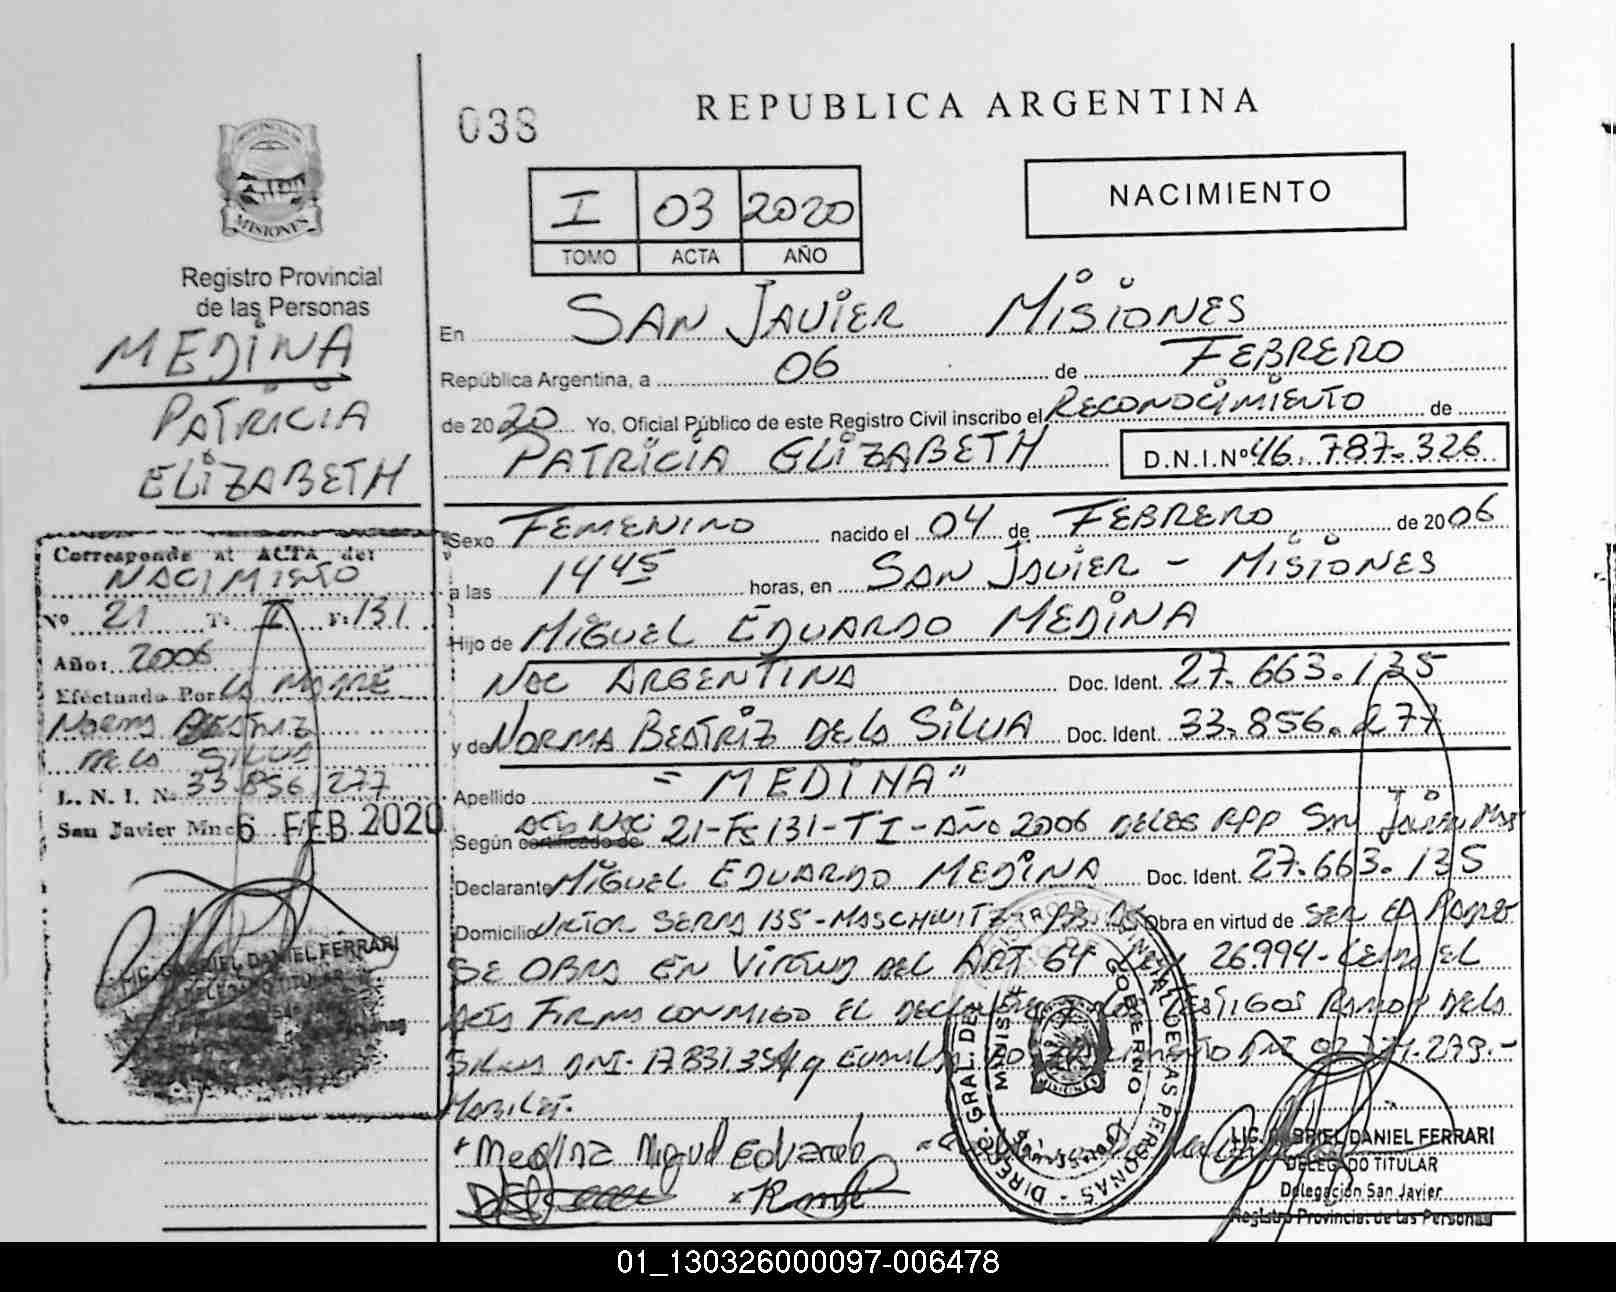 038
REPUBLICA ARGENTINA
NACIMIENTO
I 03 2020
TOMO ACTA AÑO
MISIONES
Registro Provincial
de las Personas
MEDINA
PATRICIA
ELIZABETH
En SAN JAVIER MISIONES
República Argentina, a 06 de FEBRERO
de 2020 Yo, Oficial Público de este Registro Civil inscribo el RECONOCIMIENTO de
PATRICIA ELIZABETH D.N.I.Nº 46.787.326
Sexo FEMENINO nacido el 04 de FEBRERO de 2006
a las 14 45 horas, en SAN JAVIER - MISIONES
Hijo de MIGUEL EDUARDO MEDINA
NAC ARGENTINA Doc. Ident. 27.663.135
y de NORMA BEATRIZ DE LA SILVA Doc. Ident. 33.856.277
Apellido = MEDINA"
Según certificado de ACTA NAC 21-Fs 131-T I-AÑO 2006 DE LA RPP SAN JAVIER
Declarante MIGUEL EDUARDO MEDINA Doc. Ident. 27.663.135
Domicilio VICTOR SERRA 135-MASCHWITZ Obra en virtud de SER EL PADRE
SE OBRA EN VIRTUD DEL ART 64 26.994-LEIDA EL
ACTA FIRMA CONMIGO EL TESTIGOS RAMON DE LA
SILVA DNI. 17.831.354 y DNI
Corresponde al ACTA de:
NACIMIENTO
Nº 21 T: I F: 131
Año: 2006
Efectuado Por LA MADRE
NORMA BEATRIZ
DE LA SILVA
D. N. I. N. 33.856.277
San Javier Mnes 6 FEB 2020
LIC. GABRIEL DANIEL FERRARI
DELEGADO TITULAR
Medina Miguel Eduardo
DIREC. GRAL. DEL REGISTRO PROVINCIAL DE LAS PERSONAS
GOBIERNO
MINIST
LIC. GABRIEL DANIEL FERRARI
DELEGADO TITULAR
Delegación San Javier
Registro Provincial de las Personas
01_130326000097-006478